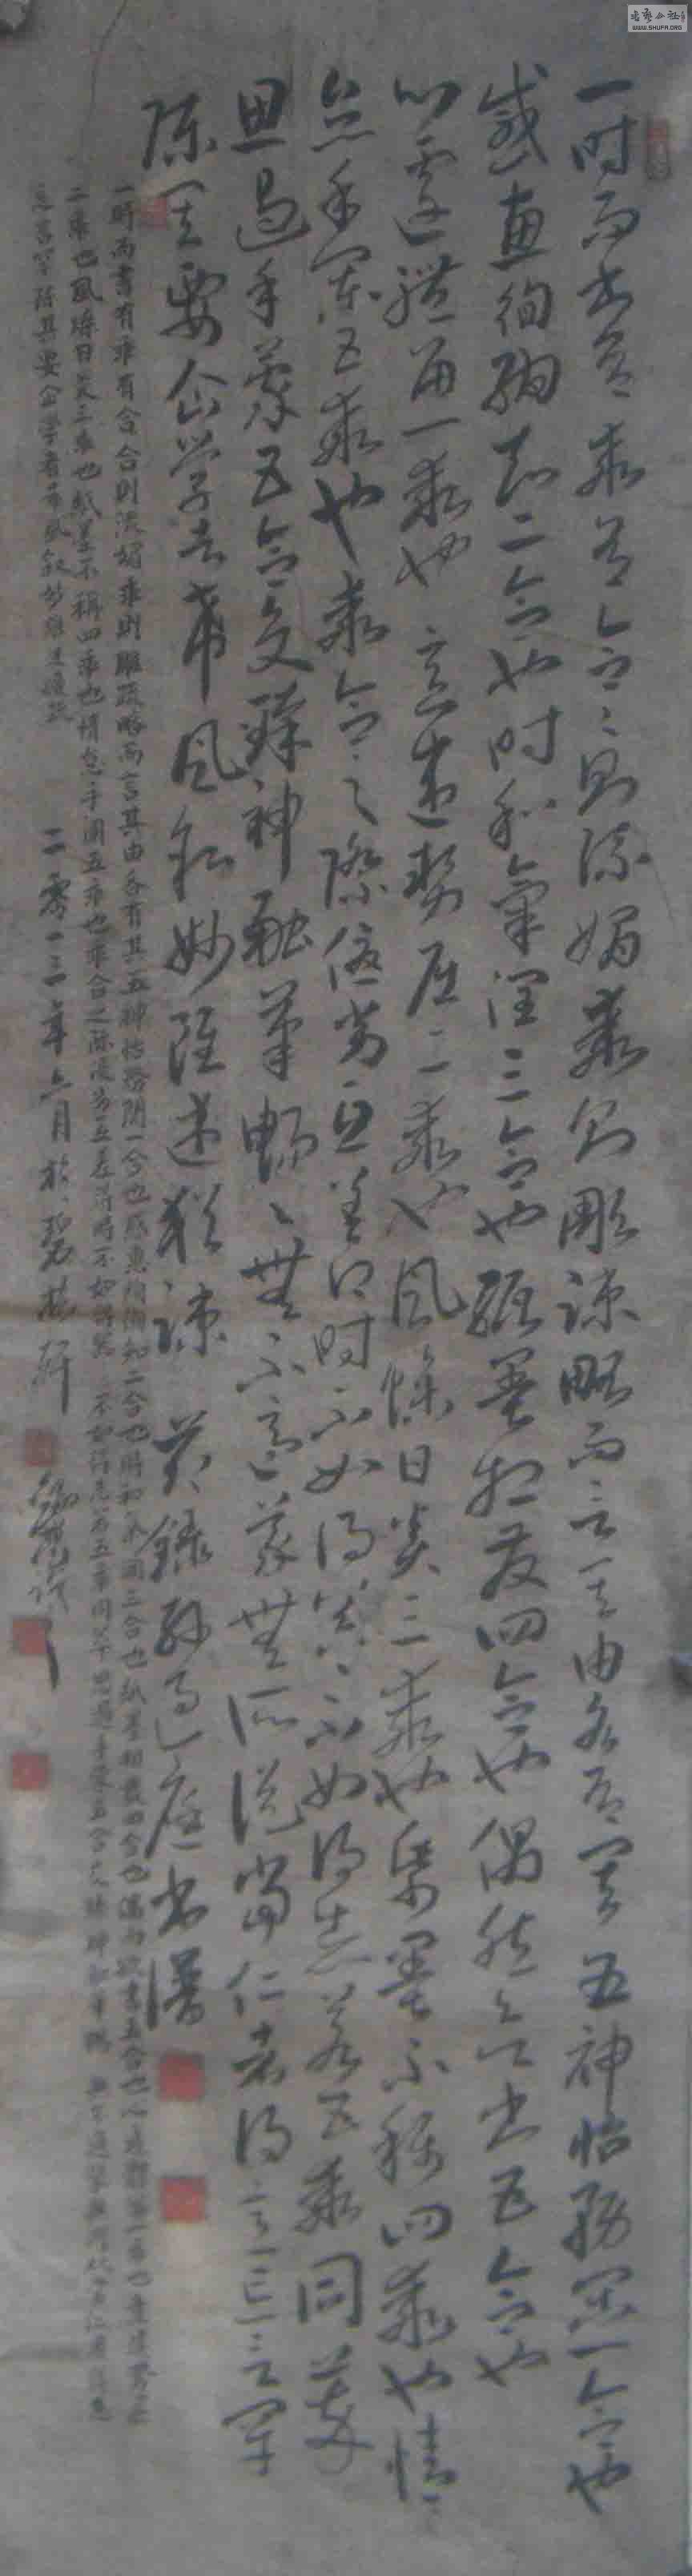 一时而书有乖有合合、则流媚乖则彫疎略而言其由各有其五神怡務闲一合也
感惠徇知二合也时和氣润三合也纸墨相发四合也偶然欲书五合也
心遽體留一乖也意违势屈二乖也风燥日炎三乖也纸墨不称四乖也情
怠手阑五乖也乖合之际优劣互差得时不如得器、不如得志若五乖同萃
思遏手蒙五合交臻神融筆畅、無不適蒙無所從当仁者得意忘言罕
陈其要企学者希风叙妙雖述猶疎 节录孙过庭书谱
一時而書有乖有合合則流媚乖則雕疏略而言其由各有其五神怡務閑一合也感惠徇知二合也時和氣潤三合也紙墨相發四合也偶然欲書五合也心遽體留一乖也意違勢屈
二乖也風燥日炎三乖也紙墨不稱四乖也情怠手闌五乖也乖合之際優劣互差得時不如得器不如得志若五乖同萃思遏手蒙五合交臻神融筆暢無不適蒙無所從當仁者得意
忘言罕陳其要企學者希風敘妙雖述猶疎
二零一三年六月於
WWW.SHUFA.ORG